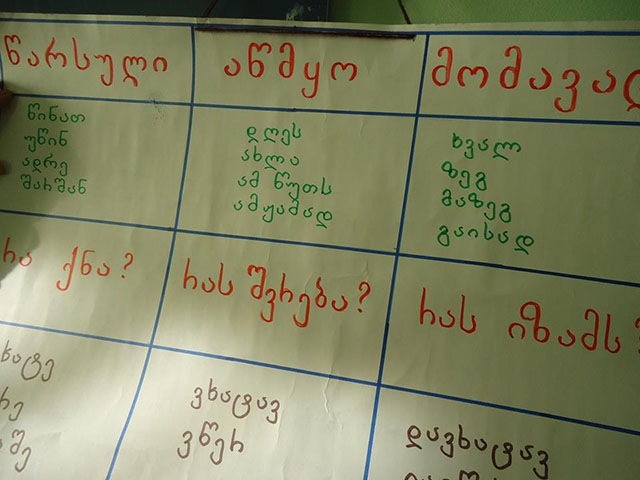 წარსული აწმყო
წინათ
უწინ
ადრე
შარშან
დღეს
ახლა
ამ წუთს
ამჟამად
ხვალ
ზეგ
მაზეგ
გაისად
ქნა? რას შვრება? რას იზამს
ვხატავ
ვწერ
დავხატავ